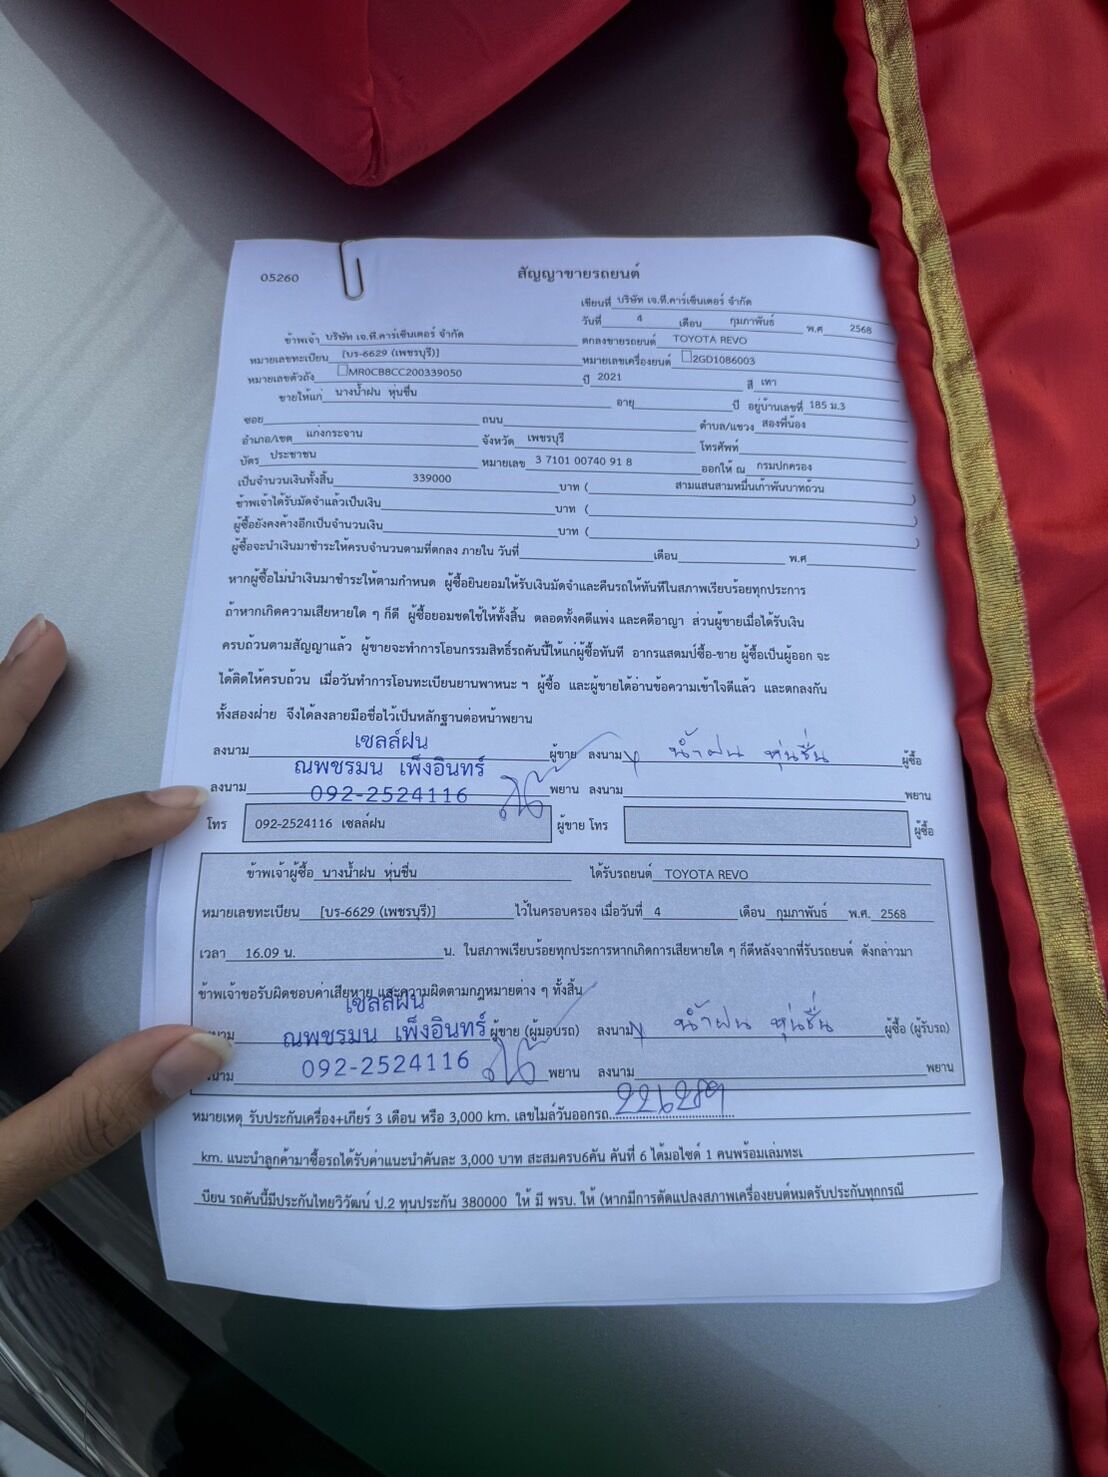 05260
สัญญาขายรถยนต์
เขียนที่ บริษัท เจ.ที.คาร์เซ็นเตอร์ จำกัด
วันที่ 4 เดือน กุมภาพันธ์ พ.ศ 2568
ข้าพเจ้า บริษัท เจ.ที.คาร์เซ็นเตอร์ จำกัด ตกลงขายรถยนต์ TOYOTA REVO
หมายเลขทะเบียน [บร-6629 (เพชรบุรี)] หมายเลขเครื่องยนต์ 2GD1086003
หมายเลขตัวถัง MR0CB8CC200339050 ปี 2021 สี เทา
ขายให้แก่ นางน้ำฝน หุ่นชื่น อายุ ปี อยู่บ้านเลขที่ 185 ม.3
ซอย ถนน ตำบล/แขวง สองพี่น้อง
อำเภอ/เขต แก่งกระจาน จังหวัด เพชรบุรี โทรศัพท์
บัตร ประชาชน หมายเลข 3 7101 00740 91 8 ออกให้ ณ กรมปกครอง
เป็นจำนวนเงินทั้งสิ้น 339000 บาท ( สามแสนสามหมื่นเก้าพันบาทถ้วน )
ข้าพเจ้าได้รับมัดจำแล้วเป็นเงิน บาท ( )
ผู้ซื้อยังคงค้างอีกเป็นจำนวนเงิน บาท ( )
ผู้ซื้อจะนำเงินมาชำระให้ครบจำนวนตามที่ตกลง ภายใน วันที่ เดือน พ.ศ
หากผู้ซื้อไม่นำเงินมาชำระให้ตามกำหนด ผู้ซื้อยินยอมให้รับเงินมัดจำและคืนรถให้ทันทีในสภาพเรียบร้อยทุกประการ
ถ้าหากเกิดความเสียหายใด ๆ ก็ดี ผู้ซื้อยอมชดใช้ให้ทั้งสิ้น ตลอดทั้งคดีแพ่ง และคดีอาญา ส่วนผู้ขายเมื่อได้รับเงิน
ครบถ้วนตามสัญญาแล้ว ผู้ขายจะทำการโอนกรรมสิทธิ์รถคันนี้ให้แก่ผู้ซื้อทันที อากรแสตมป์ซื้อ-ขาย ผู้ซื้อเป็นผู้ออก จะ
ได้ติดให้ครบถ้วน เมื่อวันทำการโอนทะเบียนยานพาหนะ ฯ ผู้ซื้อ และผู้ขายได้อ่านข้อความเข้าใจดีแล้ว และตกลงกัน
ทั้งสองฝ่าย จึงได้ลงลายมือชื่อไว้เป็นหลักฐานต่อหน้าพยาน
เซลล์ฝน
ลงนาม ผู้ขาย ลงนาม น้ำฝน หุ่นชื่น ผู้ซื้อ
ณพชรมน เพ็งอินทร์
ลงนาม 092-2524116 พยาน ลงนาม พยาน
โทร 092-2524116 เซลล์ฝน ผู้ขาย โทร ผู้ซื้อ
ข้าพเจ้าผู้ซื้อ นางน้ำฝน หุ่นชื่น ได้รับรถยนต์ TOYOTA REVO
หมายเลขทะเบียน [บร-6629 (เพชรบุรี)] ไว้ในครอบครอง เมื่อวันที่ 4 เดือน กุมภาพันธ์ พ.ศ. 2568
เวลา 16.09 น. น. ในสภาพเรียบร้อยทุกประการหากเกิดการเสียหายใด ๆ ก็ดีหลังจากที่รับรถยนต์ ดังกล่าวมา
ข้าพเจ้าขอรับผิดชอบค่าเสียหาย และความผิดตามกฎหมายต่าง ๆ ทั้งสิ้น
เซลล์ฝน
ณพชรมน เพ็งอินทร์ ผู้ขาย (ผู้มอบรถ) ลงนาม น้ำฝน หุ่นชื่น ผู้ซื้อ (ผู้รับรถ)
092-2524116 พยาน ลงนาม พยาน
หมายเหตุ รับประกันเครื่อง+เกียร์ 3 เดือน หรือ 3,000 km. เลขไมล์วันออกรถ
km. แนะนำลูกค้ามาซื้อรถได้รับค่าแนะนำคันละ 3,000 บาท สะสมครบ6คัน คันที่ 6 ได้มอไซด์ 1 คนพร้อมเล่มทะเ
บียน รถคันนี้มีประกันไทยวิวัฒน์ ป.2 ทุนประกัน 380000 ให้ มี พรบ. ให้ (หากมีการดัดแปลงสภาพเครื่องยนต์หมดรับประกันทุกกรณี